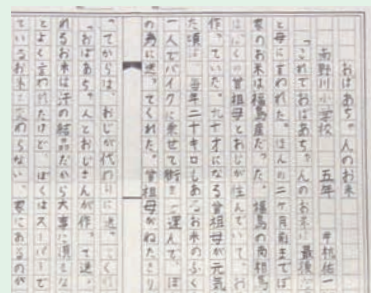 おばあちゃんのお米
南野川小学校 五年
「これでおばあちゃんのお米 最後
と母に言われた。ほんの二ヶ月前までぼく
家のお米は福島産だった。福島の南相馬
には、ぼくの曽祖母とおじが住んでいて、お
作っていた。九十才になる曽祖母が元気
た頃は、毎年二十キロもあるお米のふく
一人でバイクに乗せて街まで運んで、ぼ
の為に送ってくれた。曽祖母がねたきり
ってからは、おじが代わりに送ってくれ
「おばあちゃんとおじさんが作って送
れるお米は汗の結晶だから大事に頂きな
とよく言われたけど、ぼくはスーパーで
ているお米と変わらない、家にあるのが